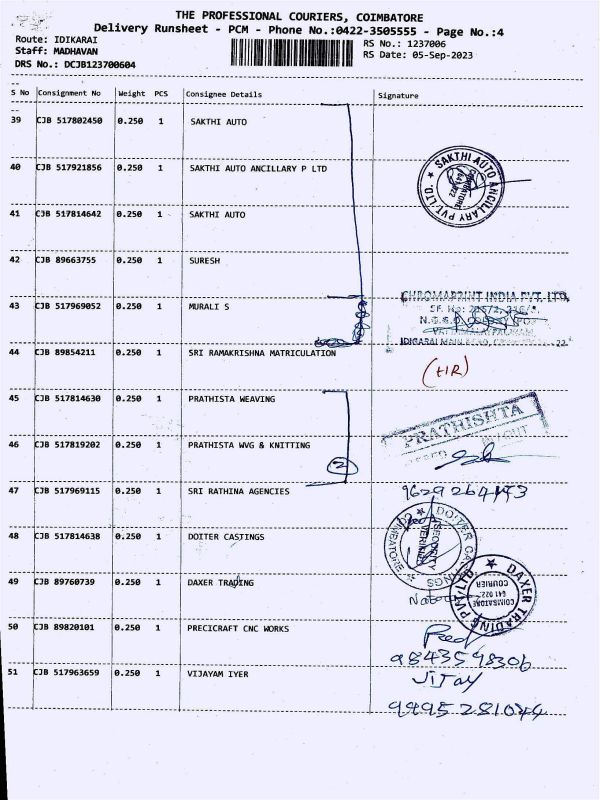 THE PROFESSIONAL COURIERS, COIMBATORE
Delivery Runsheet - PCM - Phone No.:0422-3505555 - Page No.:4
Route: IDIKARAI
RS No.: 1237006
Staff: MADHAVAN
RS Date: 05-Sep-2023
DRS No.: DCJB123700604
S No Consignment No Weight PCS Consignee Details Signature
39 CJB 517802450 0.250 1 SAKTHI AUTO
40 CJB 517921856 0.250 1 SAKTHI AUTO ANCILLARY P LTD
SAKTHI AUTO ANCILLARY PVT. LTD.
COIMBATORE
641 022
41 CJB 517814642 0.250 1 SAKTHI AUTO
42 CJB 89663755 0.250 1 SURESH
CHROMAPRINT INDIA PVT. LTD.
43 CJB 517969052 0.250 1 MURALI S
IDIGARAI MAIN ROAD
44 CJB 89854211 0.250 1 SRI RAMAKRISHNA MATRICULATION
(HR)
45 CJB 517814630 0.250 1 PRATHISTA WEAVING
PRATHISHTA
46 CJB 517819202 0.250 1 PRATHISTA WVG & KNITTING
2
47 CJB 517969115 0.250 1 SRI RATHINA AGENCIES
DOITER CASTINGS
COIMBATORE
SECURITY
VERIFIED
48 CJB 517814638 0.250 1 DOITER CASTINGS
49 CJB 89760739 0.250 1 DAXER TRADING
DAXER TRADING PVT LTD
COURIER
COIMBATORE
641 022
50 CJB 89820101 0.250 1 PRECICRAFT CNC WORKS
9843598306
51 CJB 517963659 0.250 1 VIJAYAM IYER
VIJAY
9995281044